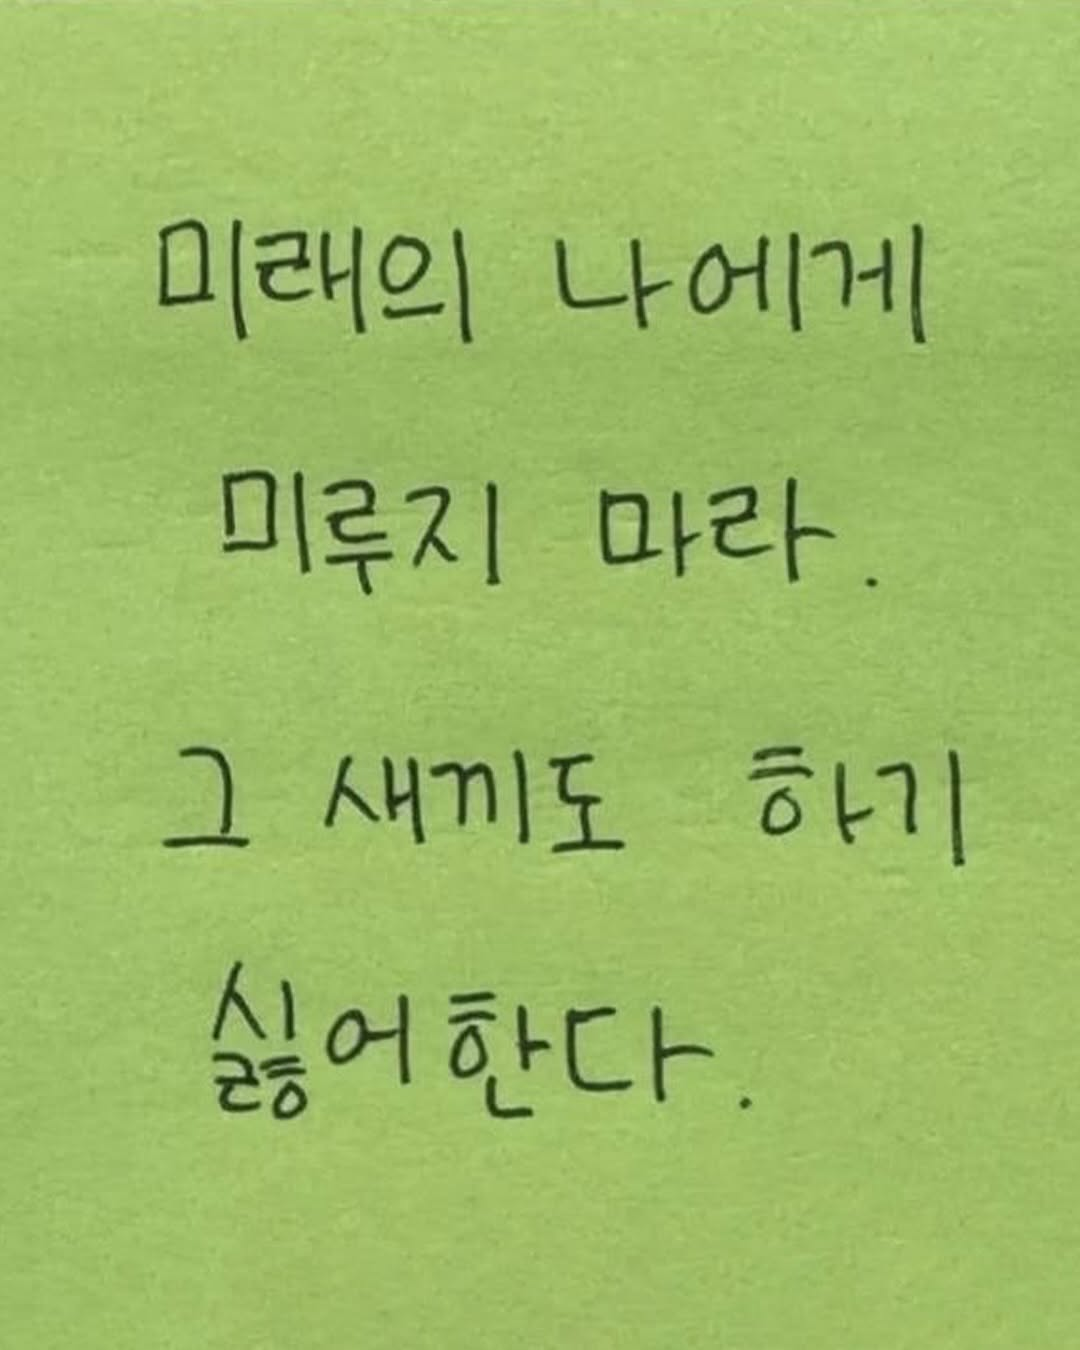 미래의 나에게
미루지 마라.
그 새끼도 하기
싫어한다.